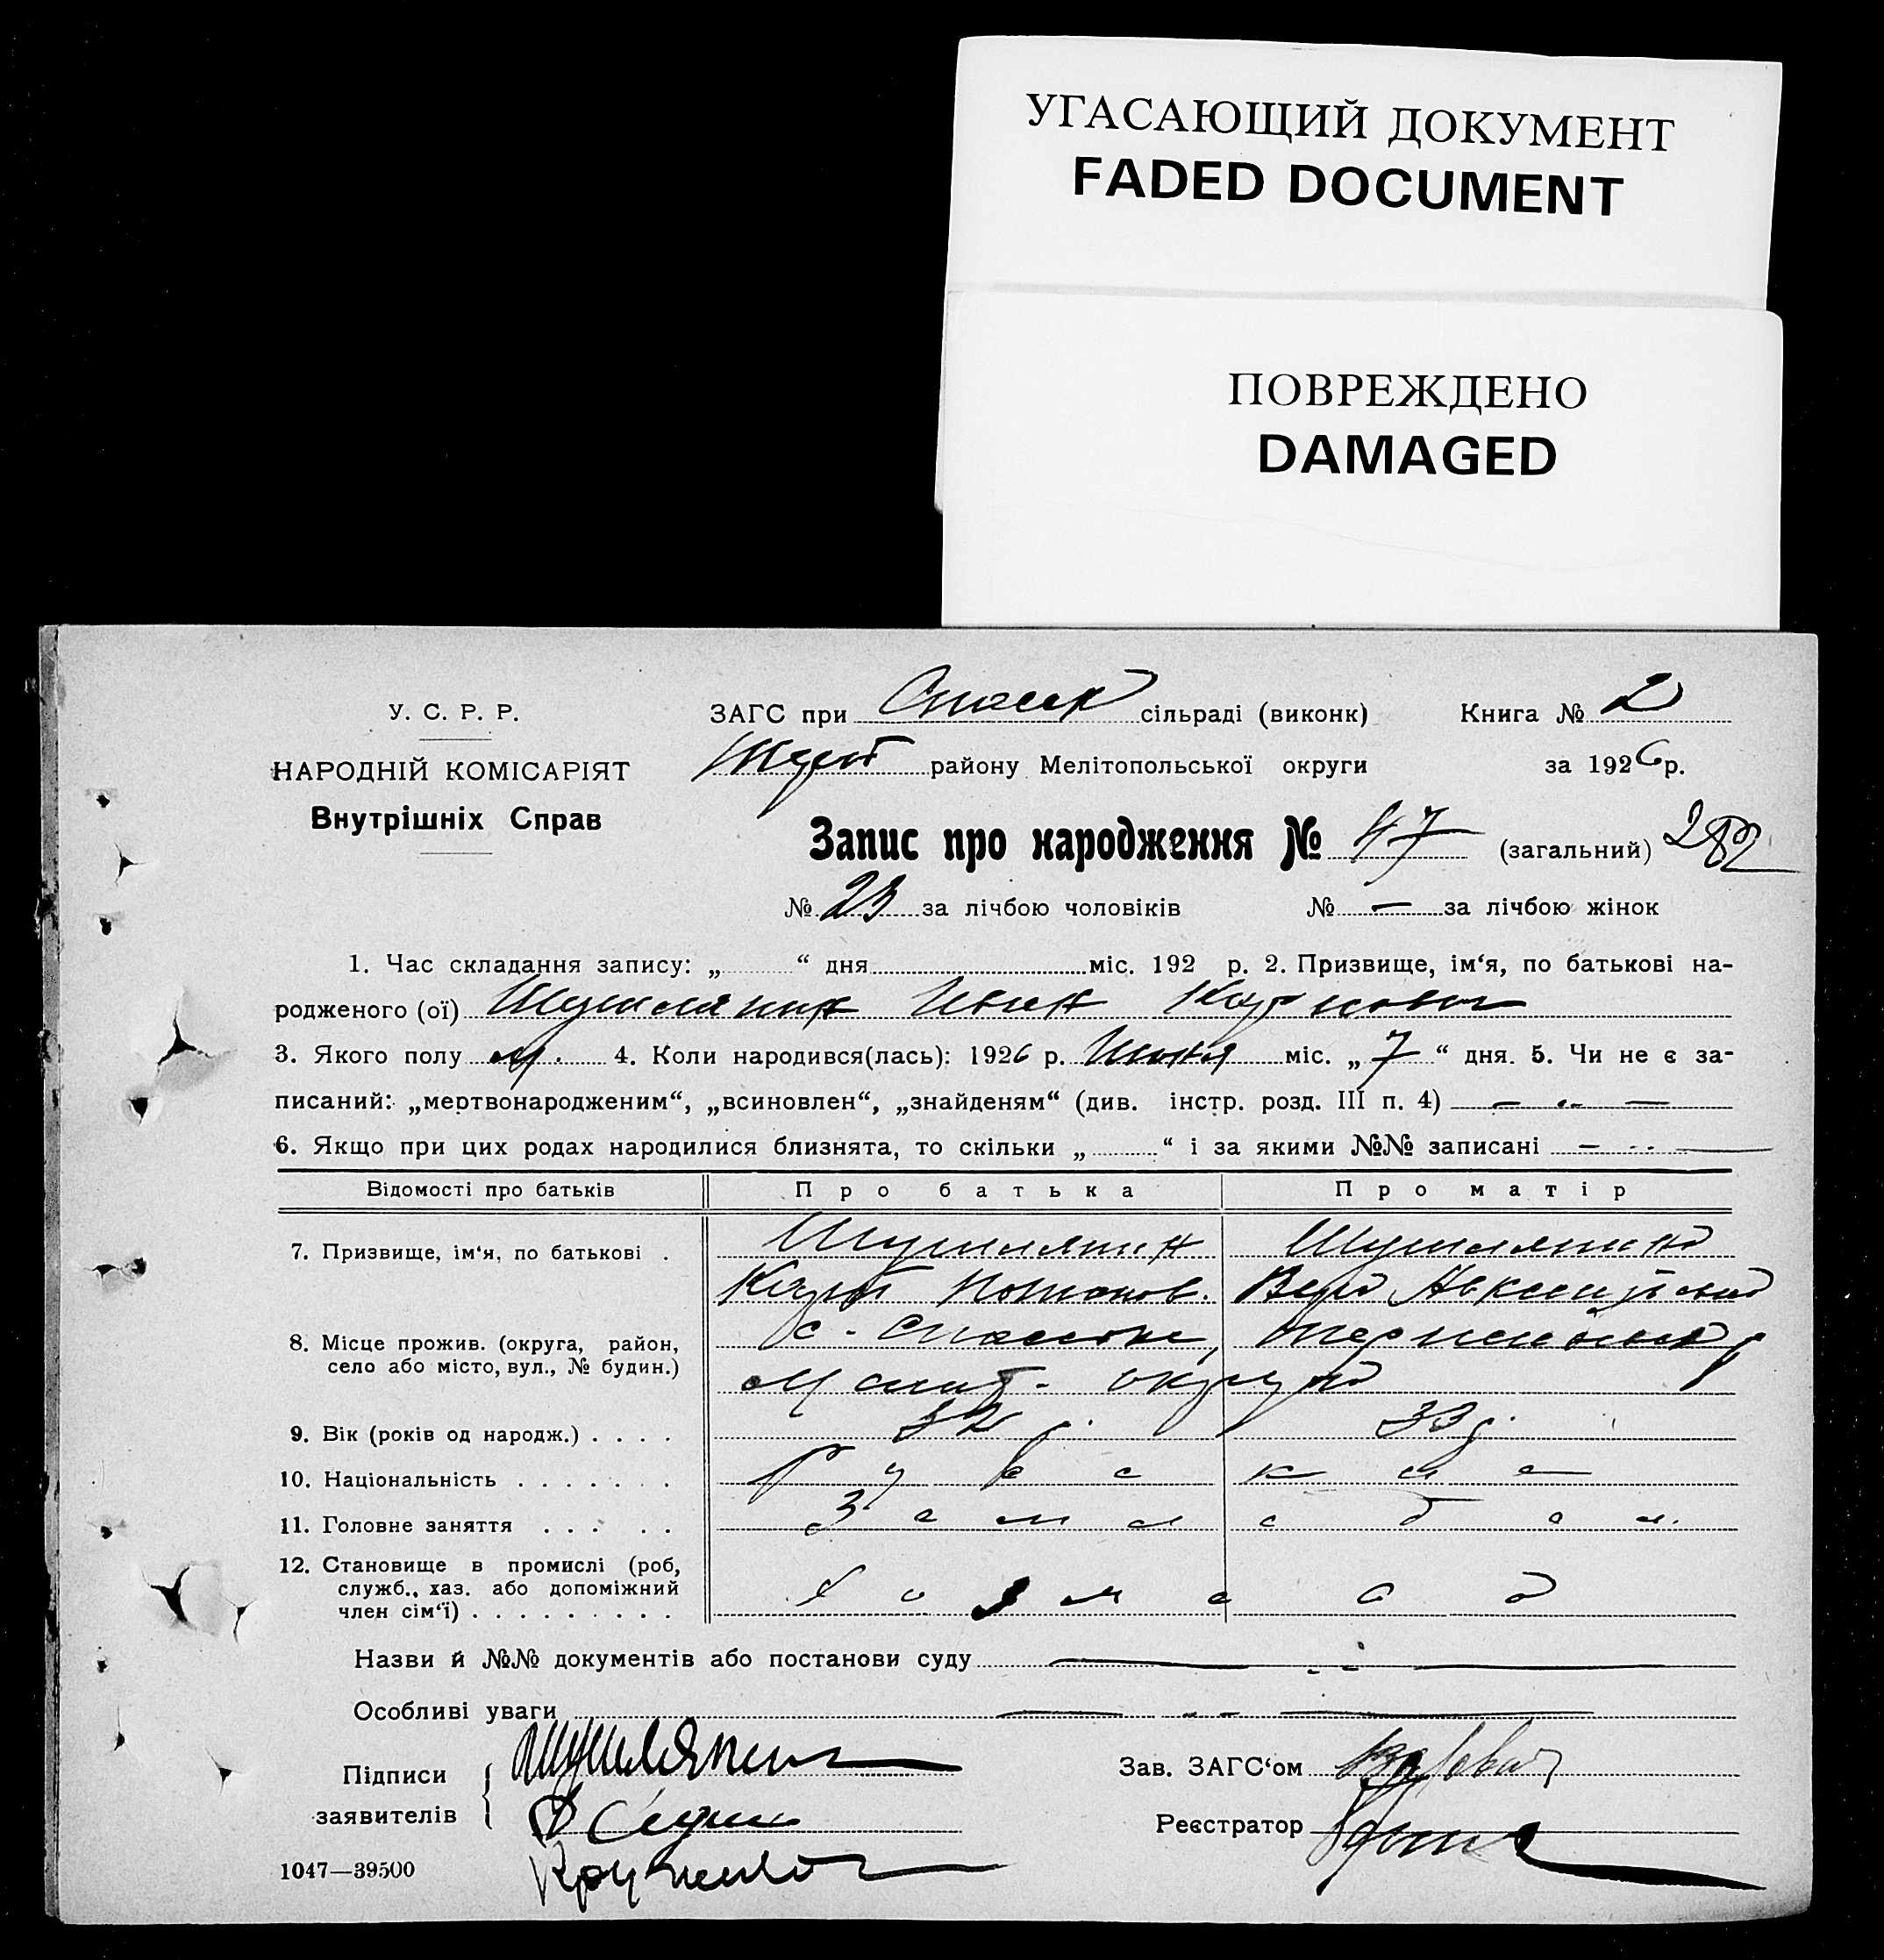 УГАСАЮЩИЙ ДОКУМЕНТ
FADED DOCUMENT
ПОВРЕЖДЕНО
DAMAGED
У. С. Р. Р.
НАРОДНІЙ КОМІСАРІЯТ
Внутрішніх Справ
ЗАГС при Спасск сільраді (виконк) Книга № 2
району Мелітопольської округи за 1926 р.
Запис про народження № 47 (загальний)
№ 23 за лічбою чоловіків № — за лічбою жінок
1. Час складання запису: „ “ дня міс. 192 р. 2. Призвище, ім‘я, по батькові на-
родженого (ої) Шушляпин Иван Карпович
3. Якого полу м. 4. Коли народився(лась): 1926 р. Июня міс. „ 7 “ дня. 5. Чи не є за-
писаний: „мертвонародженим“, „всиновлен“, „знайденям“ (див. інстр. розд. III п. 4) —
6. Якщо при цих родах народилися близнята, то скільки „ “ і за якими №№ записані —
Відомості про батьків Про батька Про матір
7. Призвище, ім‘я, по батькові . Шушляпин Шушляпина
Карп Потапов. Вера Авксентьевна
8. Місце прожив. (округа, район, с.
село або місто, вул., № будин.) Мелит. округа
9. Вік (років од народж.) . . . . 32 г. 33 г.
10. Національність . . . . . . . Русские
11. Головне заняття . . . . . Земледел.
12. Становище в промислі (роб,
служб., хаз. або допоміжний
член сім‘ї) . . . . . . . . .
Назви й №№ документів або постанови суду —
Особливі уваги —
Підписи Шушляпин Зав. ЗАГС‘ом
заявителів Реєстратор
1047—39500